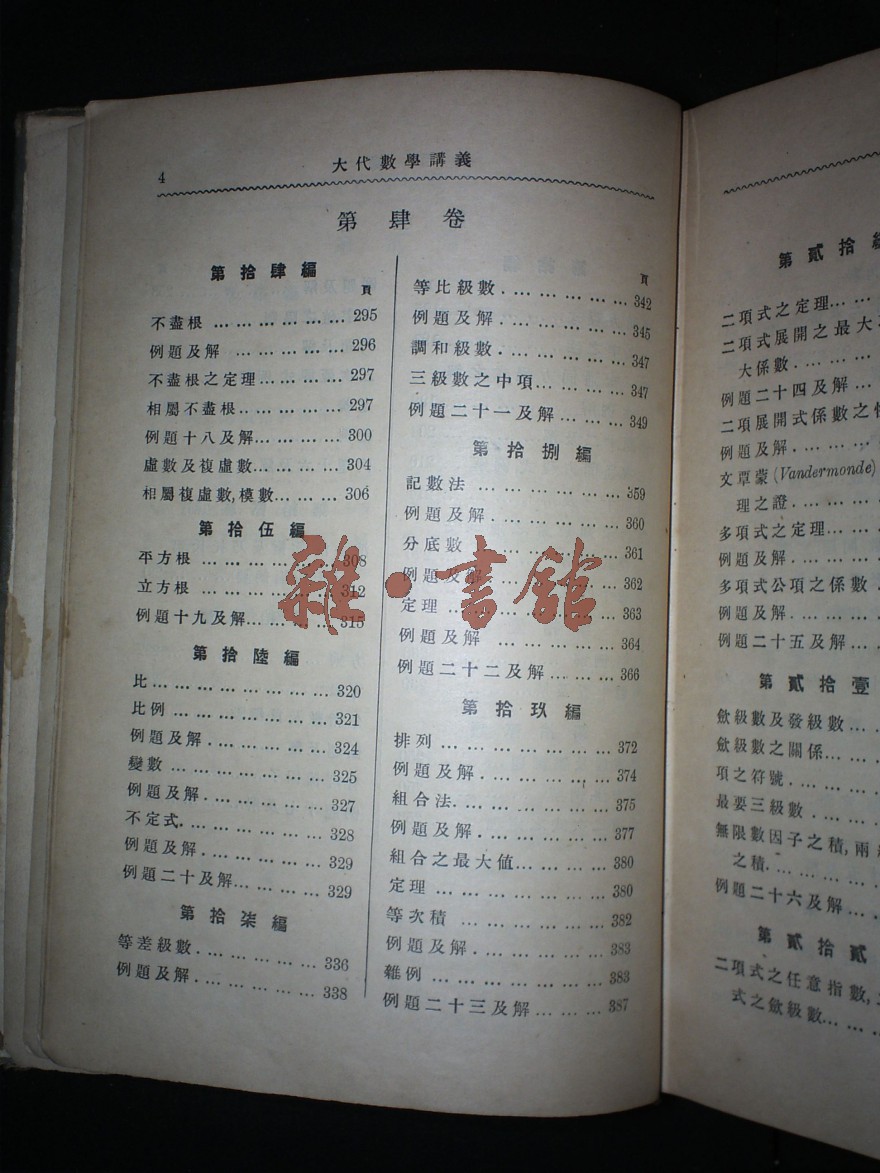 4
大代數學講義
第肆卷
第拾肆編
頁
不盡根 … … … … … 295
例題及解 … … … … 296
不盡根之定理… … … 297
相屬不盡根.. … … … 297
例題十八及解… … … 300
虛數及複虛數… … … 304
相屬複虛數,模數… … 306
第拾伍編
平方根 … … … … … 308
立方根 … … … … … 312
例題十九及解… … … 315
第拾陸編
比… … … … … … … 320
比例 … … … … … … 321
例題及解. … … … … 324
變數 … … … … … … 325
例題及解. … … … … 327
不定式. … … … … … 328
例題及解. … … … … 329
例題二十及解… … … 329
第拾柒編
等差級數. … … … … 336
例題及解. … … … … 338
頁
等比級數. … … … … 342
例題及解 … … … … 345
調和級數. … … … … 347
三級數之中項… … … 347
例題二十一及解… … 349
第拾捌編
記數法 … … … … … 359
例題及解. … … … … 360
分底數 … … … … … 361
例題及解 … … … … 362
定理 … … … … … … 363
例題及解 … … … … 364
例題二十二及解… … 366
第拾玖編
排列 … … … … … … 372
例題及解. … … … … 374
組合法. … … … … … 375
例題及解. … … … … 377
組合之最大值… … … 380
定理 … … … … … … 380
等次積 … … … … … 382
例題及解. … … … … 383
雜例 … … … … … … 383
例題二十三及解… … 387
雜·書館
第貳拾編
二項式之定理… …
二項式展開之最大
大係數. … … …
例題二十四及解… …
二項展開式係數之
例題及解. … … …
文覃蒙(Vandermonde)
理之證. … … …
多項式之定理… …
例題及解. … … …
多項式公項之係數 .
例題及解. … … …
例題二十五及解… …
第貳拾壹
斂級數及發級數 … …
斂級數之關係… …
項之符號. … … …
最要三級數 . … …
無限數因子之積,兩
之積. … … …
例題二十六及解… …
第貳拾貳
二項式之任意指數,
式之斂級數… … …